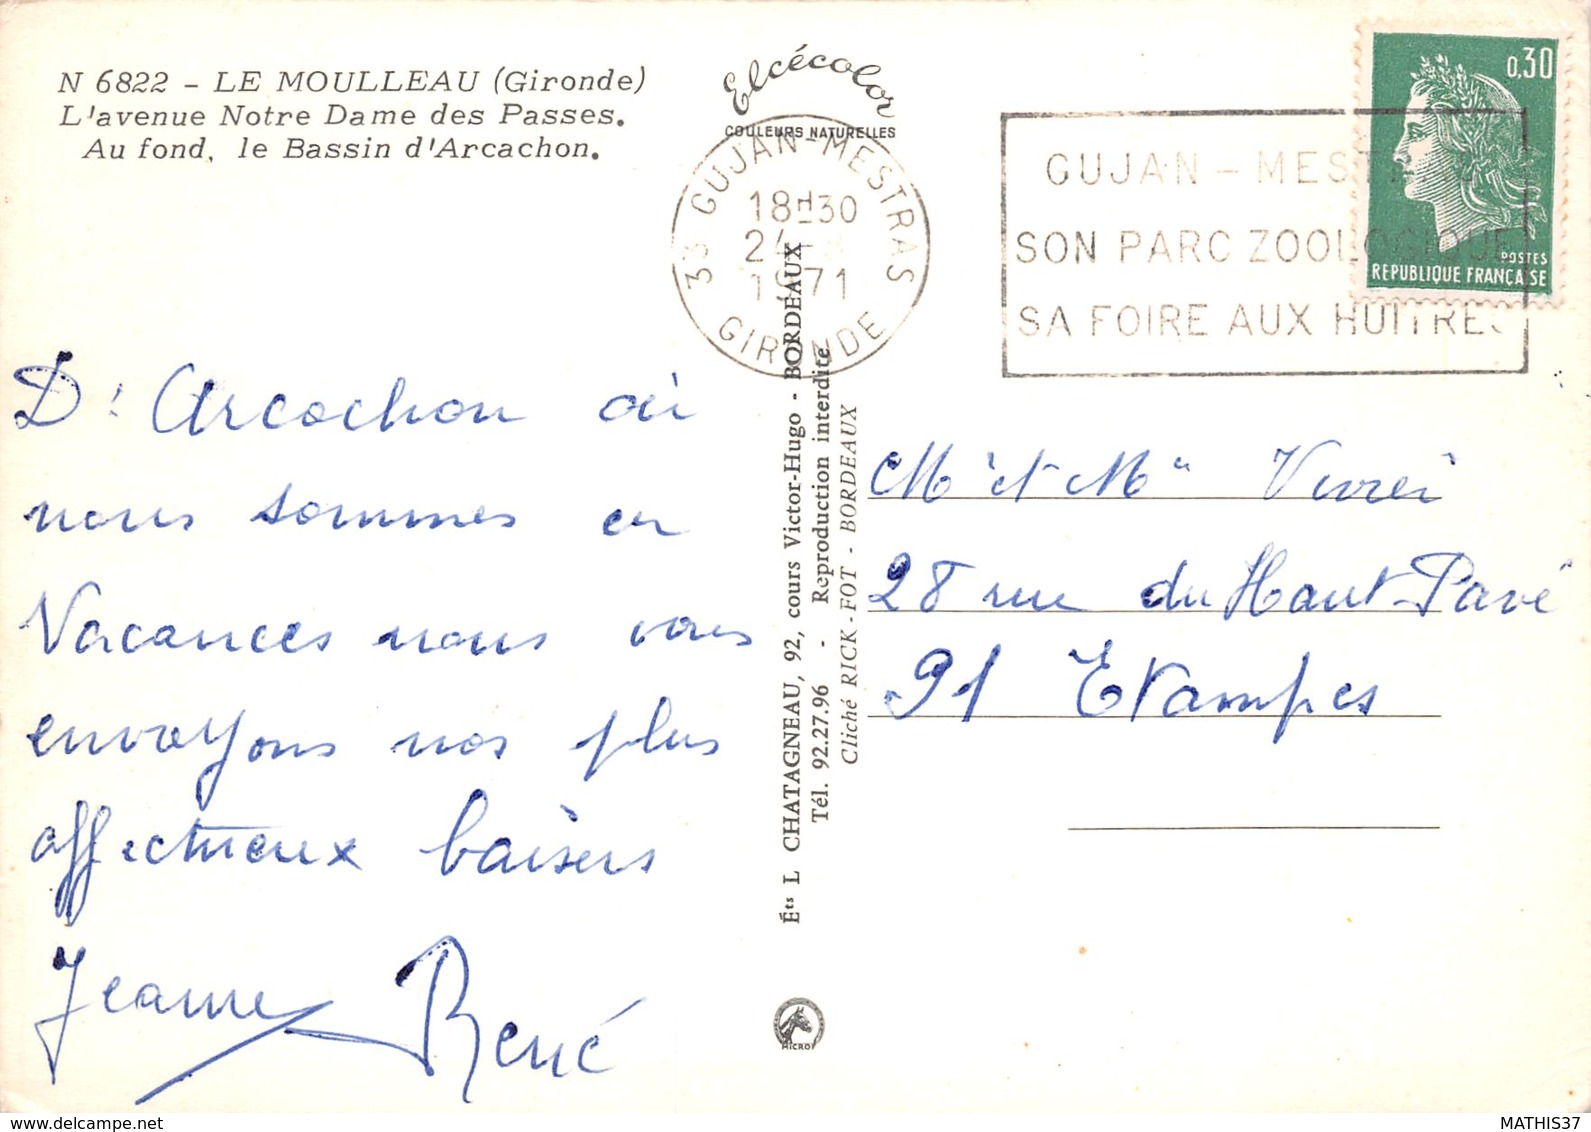 N 6822 - LE MOULLEAU (Gironde)
L'avenue Notre Dame des Passes.
Au fond, le Bassin d'Arcachon.
Elcécolor
COULEURS NATURELLES
33 GUJAN-MESTRAS
18H30
24-
1971
GIRONDE
GUJAN-MESTRAS
SON PARC ZOOLOGIQUE
SA FOIRE AUX HUITRES
0,30
POSTES
REPUBLIQUE FRANÇAISE
D'Arcachon où
nous sommes en
Vacances nous vous
envoyons nos plus
affectueux baisers
Jeanne René
Éts L CHATAGNEAU, 92, cours Victor-Hugo - BORDEAUX
Tél. 92.27.96 - Reproduction interdite
Cliché RICK-FOT - BORDEAUX
Mr et Mme
28 rue du Haut-Pavé
91 Etampes
www.delcampe.net
MATHIS37